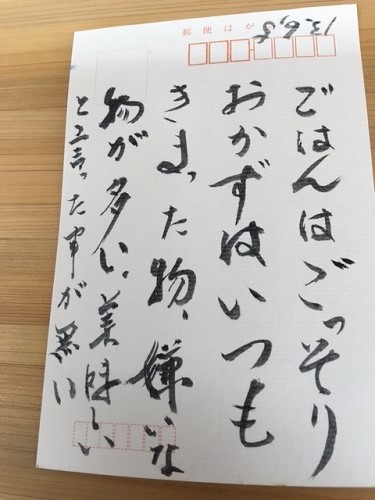 郵便はが
13.6.8
ごはんはごっそり
おかずはいつも
きまった物、嫌いな
物が多い、美味しい
と言った事が無い